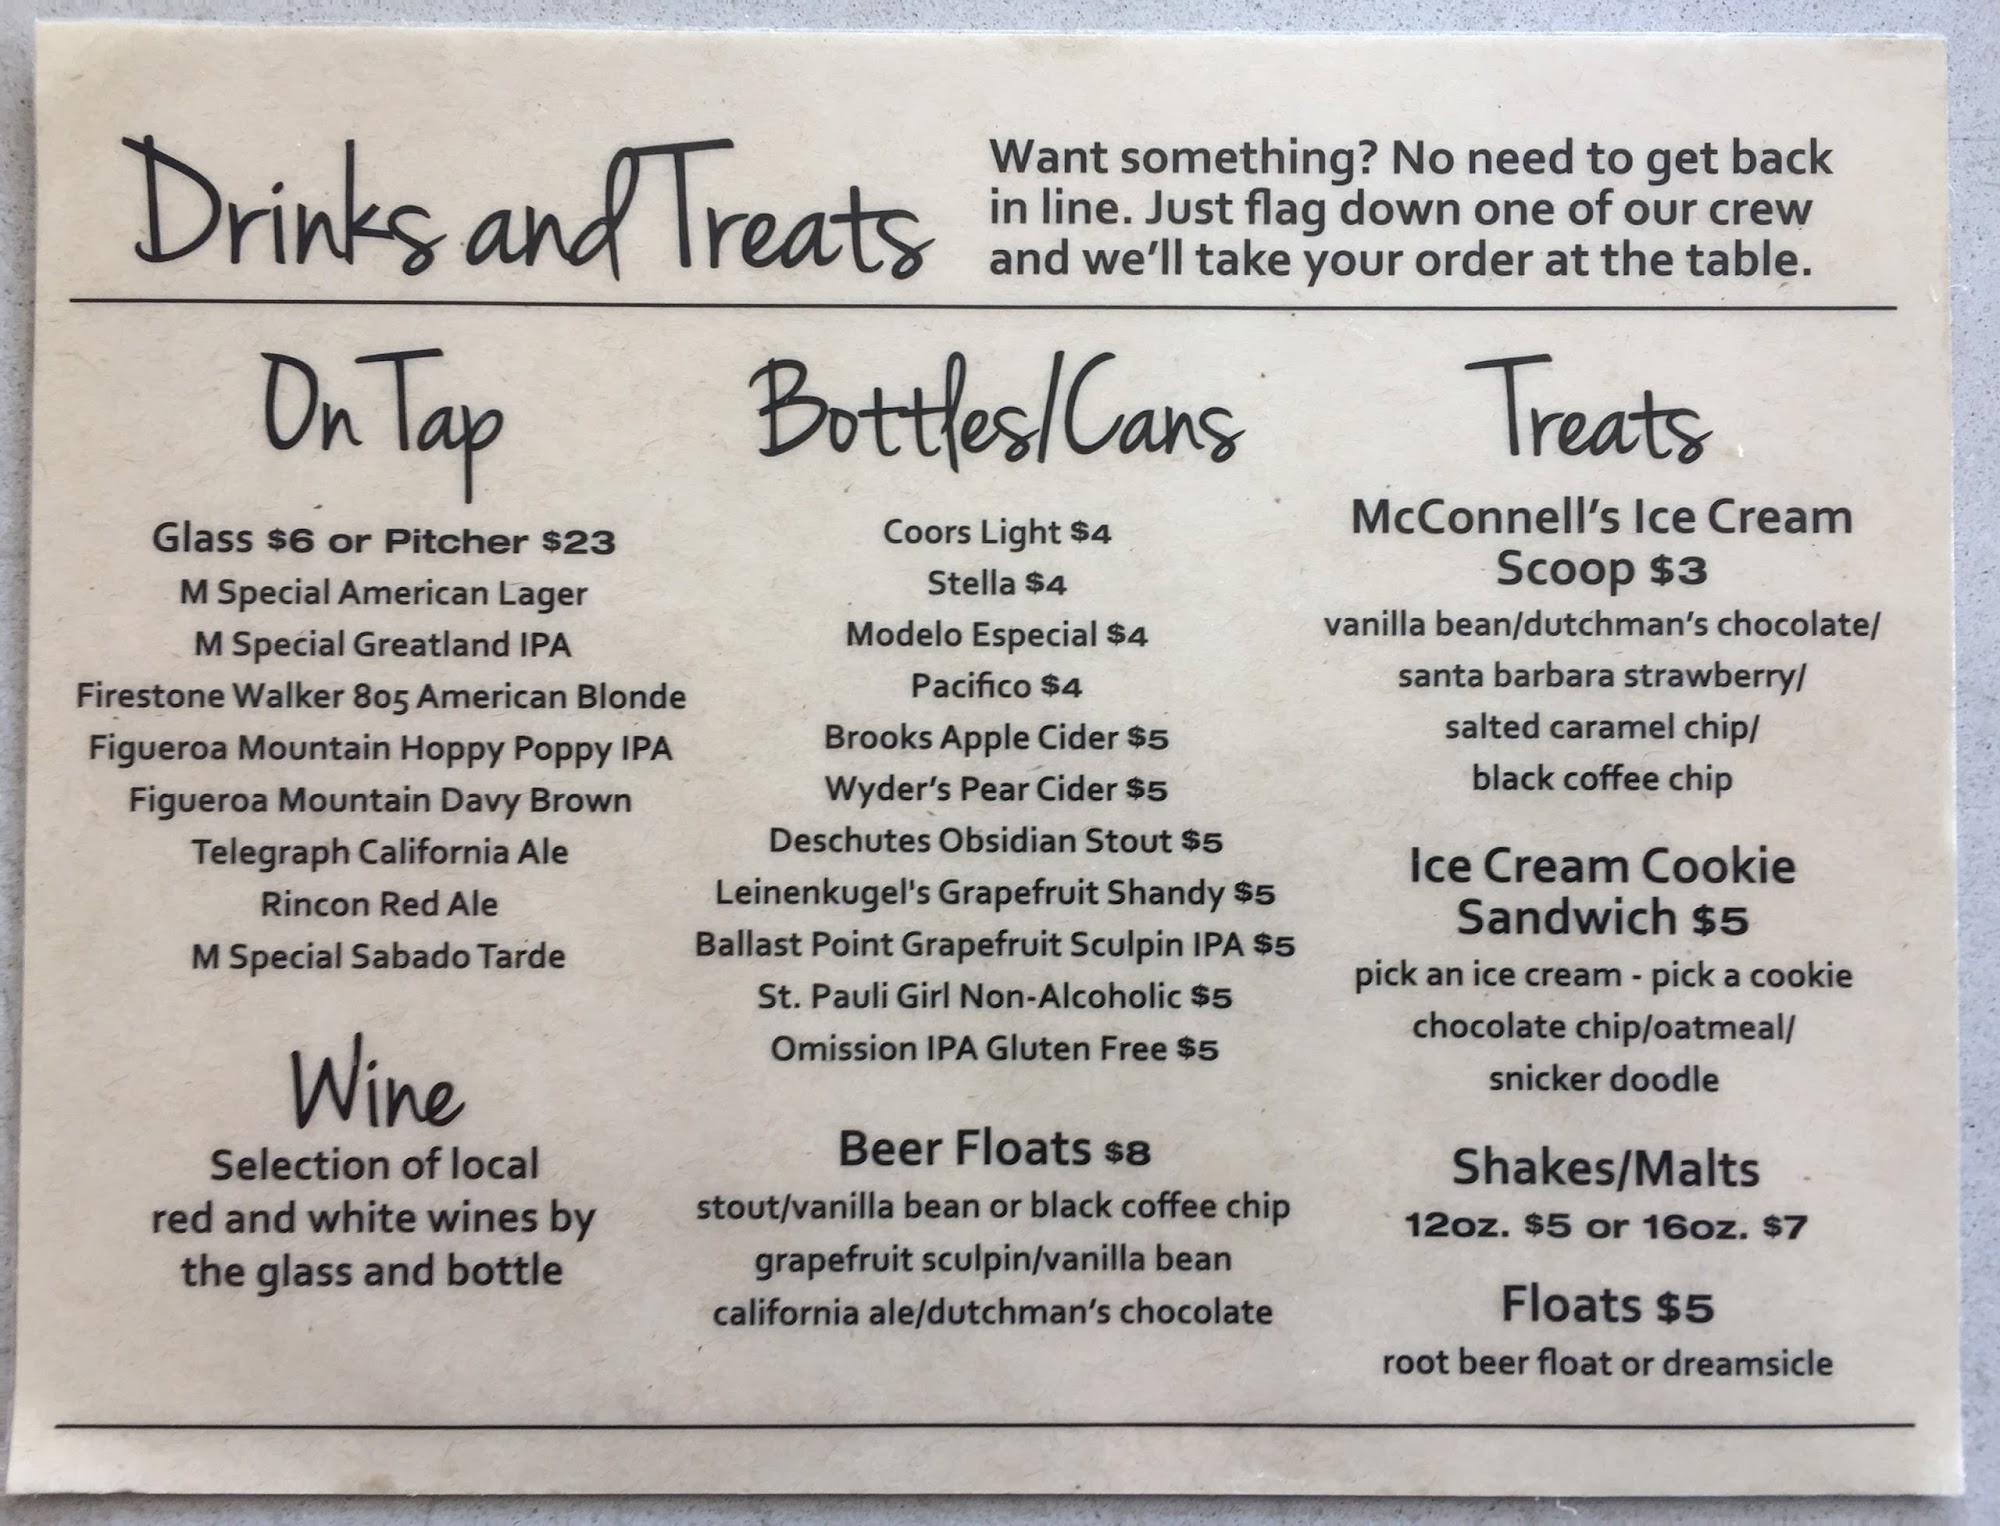 Drinks and Treats
Want something? No need to get back
in line. Just flag down one of our crew
and we'll take your order at the table.
On Tap
Glass $6 or Pitcher $23
M Special American Lager
M Special Greatland IPA
Firestone Walker 805 American Blonde
Figueroa Mountain Hoppy Poppy IPA
Figueroa Mountain Davy Brown
Telegraph California Ale
Rincon Red Ale
M Special Sabado Tarde
Wine
Selection of local
red and white wines by
the glass and bottle
Bottles/Cans
Coors Light $4
Stella $4
Modelo Especial $4
Pacifico $4
Brooks Apple Cider $5
Wyder's Pear Cider $5
Deschutes Obsidian Stout $5
Leinenkugel's Grapefruit Shandy $5
Ballast Point Grapefruit Sculpin IPA $5
St. Pauli Girl Non-Alcoholic $5
Omission IPA Gluten Free $5
Beer Floats $8
stout/vanilla bean or black coffee chip
grapefruit sculpin/vanilla bean
california ale/dutchman's chocolate
Treats
McConnell's Ice Cream
Scoop $3
vanilla bean/dutchman's chocolate/
santa barbara strawberry/
salted caramel chip/
black coffee chip
Ice Cream Cookie
Sandwich $5
pick an ice cream - pick a cookie
chocolate chip/oatmeal/
snicker doodle
Shakes/Malts
12oz. $5 or 16oz. $7
Floats $5
root beer float or dreamsicle